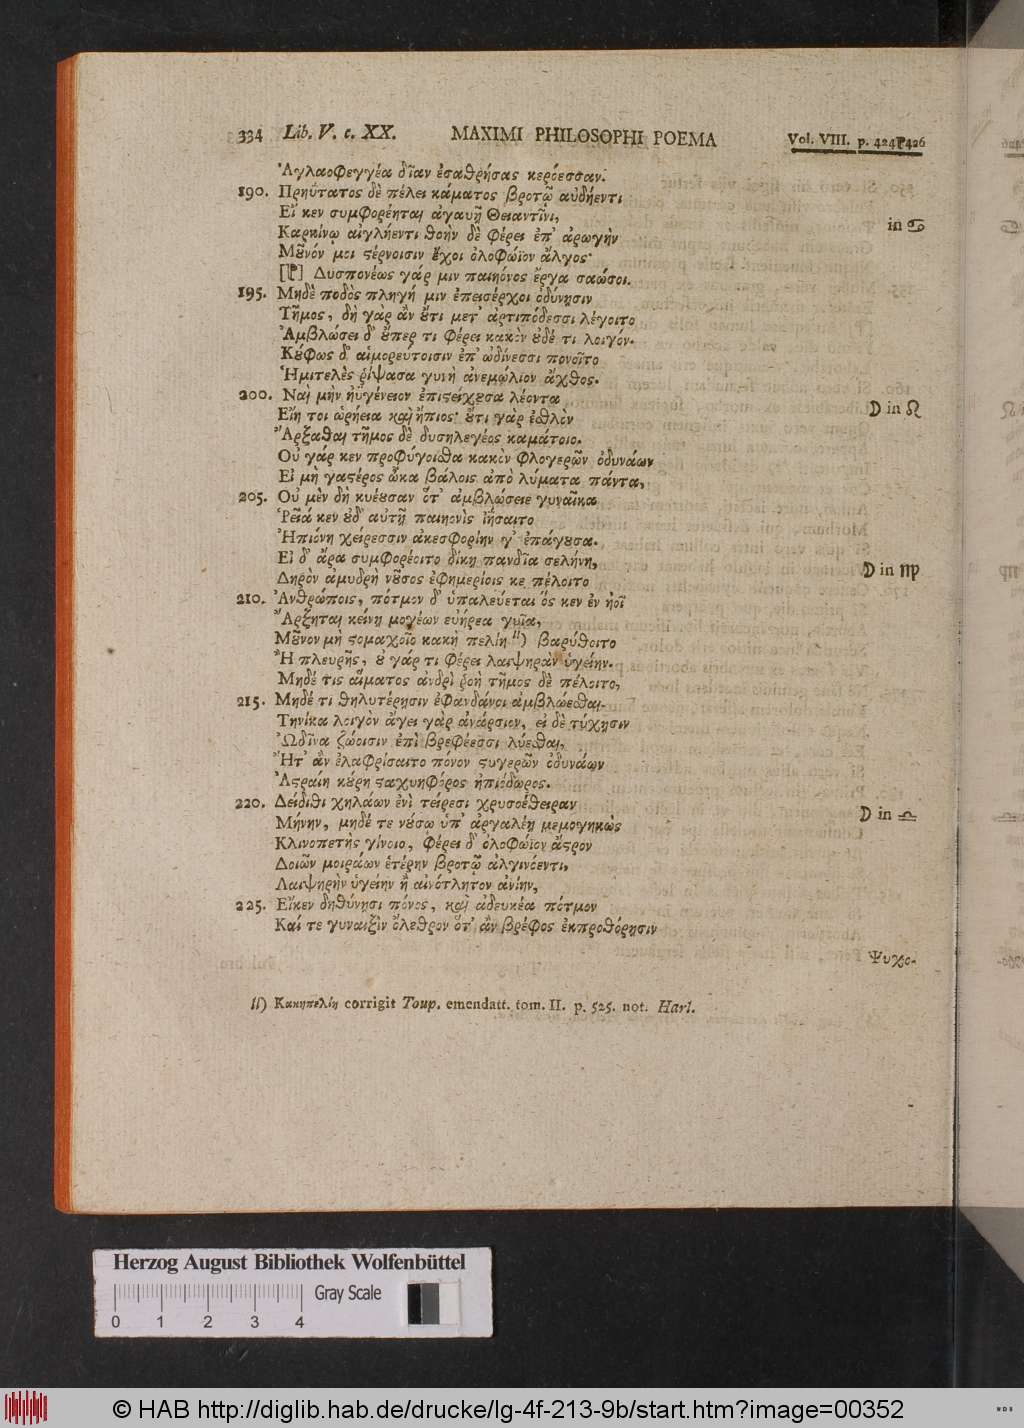 334 Lib. V. c. XX. MAXIMI PHILOSOPHI POEMA Vol. VIII. p. 424 ⁋ 426
Ἀγλαοφεγγέα δῖαν ἐσαθρήσας κερόεσσαν.
190. Πρηΰτατος δὲ πέλει κάματος βροτῷ αὐδήεντι
Εἴ κεν συμφορέηται ἀγαυῇ Θειαντίνι,
Καρκίνῳ αἰγλήεντι θοὴν δὲ φέρει ἐπ' ἀρωγὴν in ♋
Μοῦνόν μοι στέρνοισιν ἔχοι ὀλοφώϊον ἄλγος·
[⁋] Δυσπονέως γάρ μιν παιηόνος ἔργα σαώσοι.
195. Μηδὲ ποδὸς πληγή μιν ἐπεισέρχοι ὀδύνῃσιν
Τῆμος, δὴ γὰρ ἂν οὔτι μετ' ἀρτιπόδεσσι λέγοιτο
Ἀμβλώσει δ' οὔπερ τι φέρει κακὸν οὐδέ τι λοιγόν.
Κούφως δ' αἱμορεύτοισιν ἐπ' ὠδίνεσσι πονοῖτο
Ἡμιτελὲς ῥίψασα γυνὴ ἀνεμώλιον ἄχθος.
200. Ναὶ μὴν ἠϋγένειον ἐπιστείχουσα λέοντα ☽ in ♌
Εἴη τοι ὠρήεια καὶ ἤπιος· οὔτι γὰρ ἐσθλὸν
Ἄρξασθαι τῆμος δὲ δυσηλεγέος καμάτοιο.
Οὐ γάρ κεν προφύγοισθα κακὸν φλογερῶν ὀδυνάων
Εἰ μὴ γαστέρος ὦκα βάλοις ἀπὸ λύματα πάντα,
205. Οὐ μὲν δὴ κυέουσαν ὅτ' ἀμβλώσειε γυναῖκα
Ῥεῖά κεν οὐδ' αὐτῇ παιηονὶς ἰήσαιτο
Ἠπιόνη χείρεσσιν ἀκεσφορίην γ' ἐπάγουσα.
Εἰ δ' ἄρα συμφορέοιτο δίκῃ πανδῖα σελήνη, ☽ in ♍
Δηρὸν ἀμυδρὴ νοῦσος ἐφημερίοις κε πέλοιτο
210. Ἀνθρώποις, πότμον δ' ὑπαλεύεται ὅς κεν ἐν ἠοῖ
Ἄρξηται κείνῃ μογέων εὐήρεα γυῖα,
Μοῦνον μὴ στομαχοῖο κακὴ πελίη ll) βαρύθοιτο
Ἢ πλευρῆς, οὐ γάρ τι φέρει λαιψηρὰν ὑγείην.
Μηδέ τις αἵματος ἀνδρὶ ῥοὴ τῆμος δὲ πέλοιτο,
215. Μηδέ τι θηλυτέρῃσιν ἐφανδάνοι ἀμβλώεσθαι.
Τηνίκα λοιγὸν ἄγει γὰρ ἀνάρσιον, εἰ δὲ τύχῃσιν
Ὠδῖνα ζώοισιν ἐπὶ βρεφέεσσι λύεσθαι,
Ἥτ' ἂν ἐλαφρίσαιτο πόνον στυγερῶν ὀδυνάων
Ἀστραίη κούρη σταχυηφόρος ἠπιόδωρος.
220. Δείδιθι χηλάων ἐνὶ τείρεσι χρυσοέθειραν
Μήνην, μηδέ τε νούσῳ ὑπ' ἀργαλέῃ μεμογηκὼς ☽ in ♎
Κλινοπετὴς γίνοιο, φέρει δ' ὀλοφώϊον ἄστρον
Δοιῶν μοιράων ἑτέρην βροτῷ ἀλγινόεντι,
Λαιψηρὴν ὑγείην ἢ αἰνότλητον ἀνίην,
225. Εἴκεν δηθύνῃσι πόνος, καὶ ἀδευκέα πότμον
Καί τε γυναιξὶν ὄλεθρον ὅτ' ἂν βρέφος ἐκπροθόρῃσιν
Ψυχο-
ll) Κακηπελίη corrigit Toup. emendatt. tom. II. p. 525. not. Harl.
Herzog August Bibliothek Wolfenbüttel
Gray Scale
0 1 2 3 4
© HAB http://diglib.hab.de/drucke/lg-4f-213-9b/start.htm?image=00352